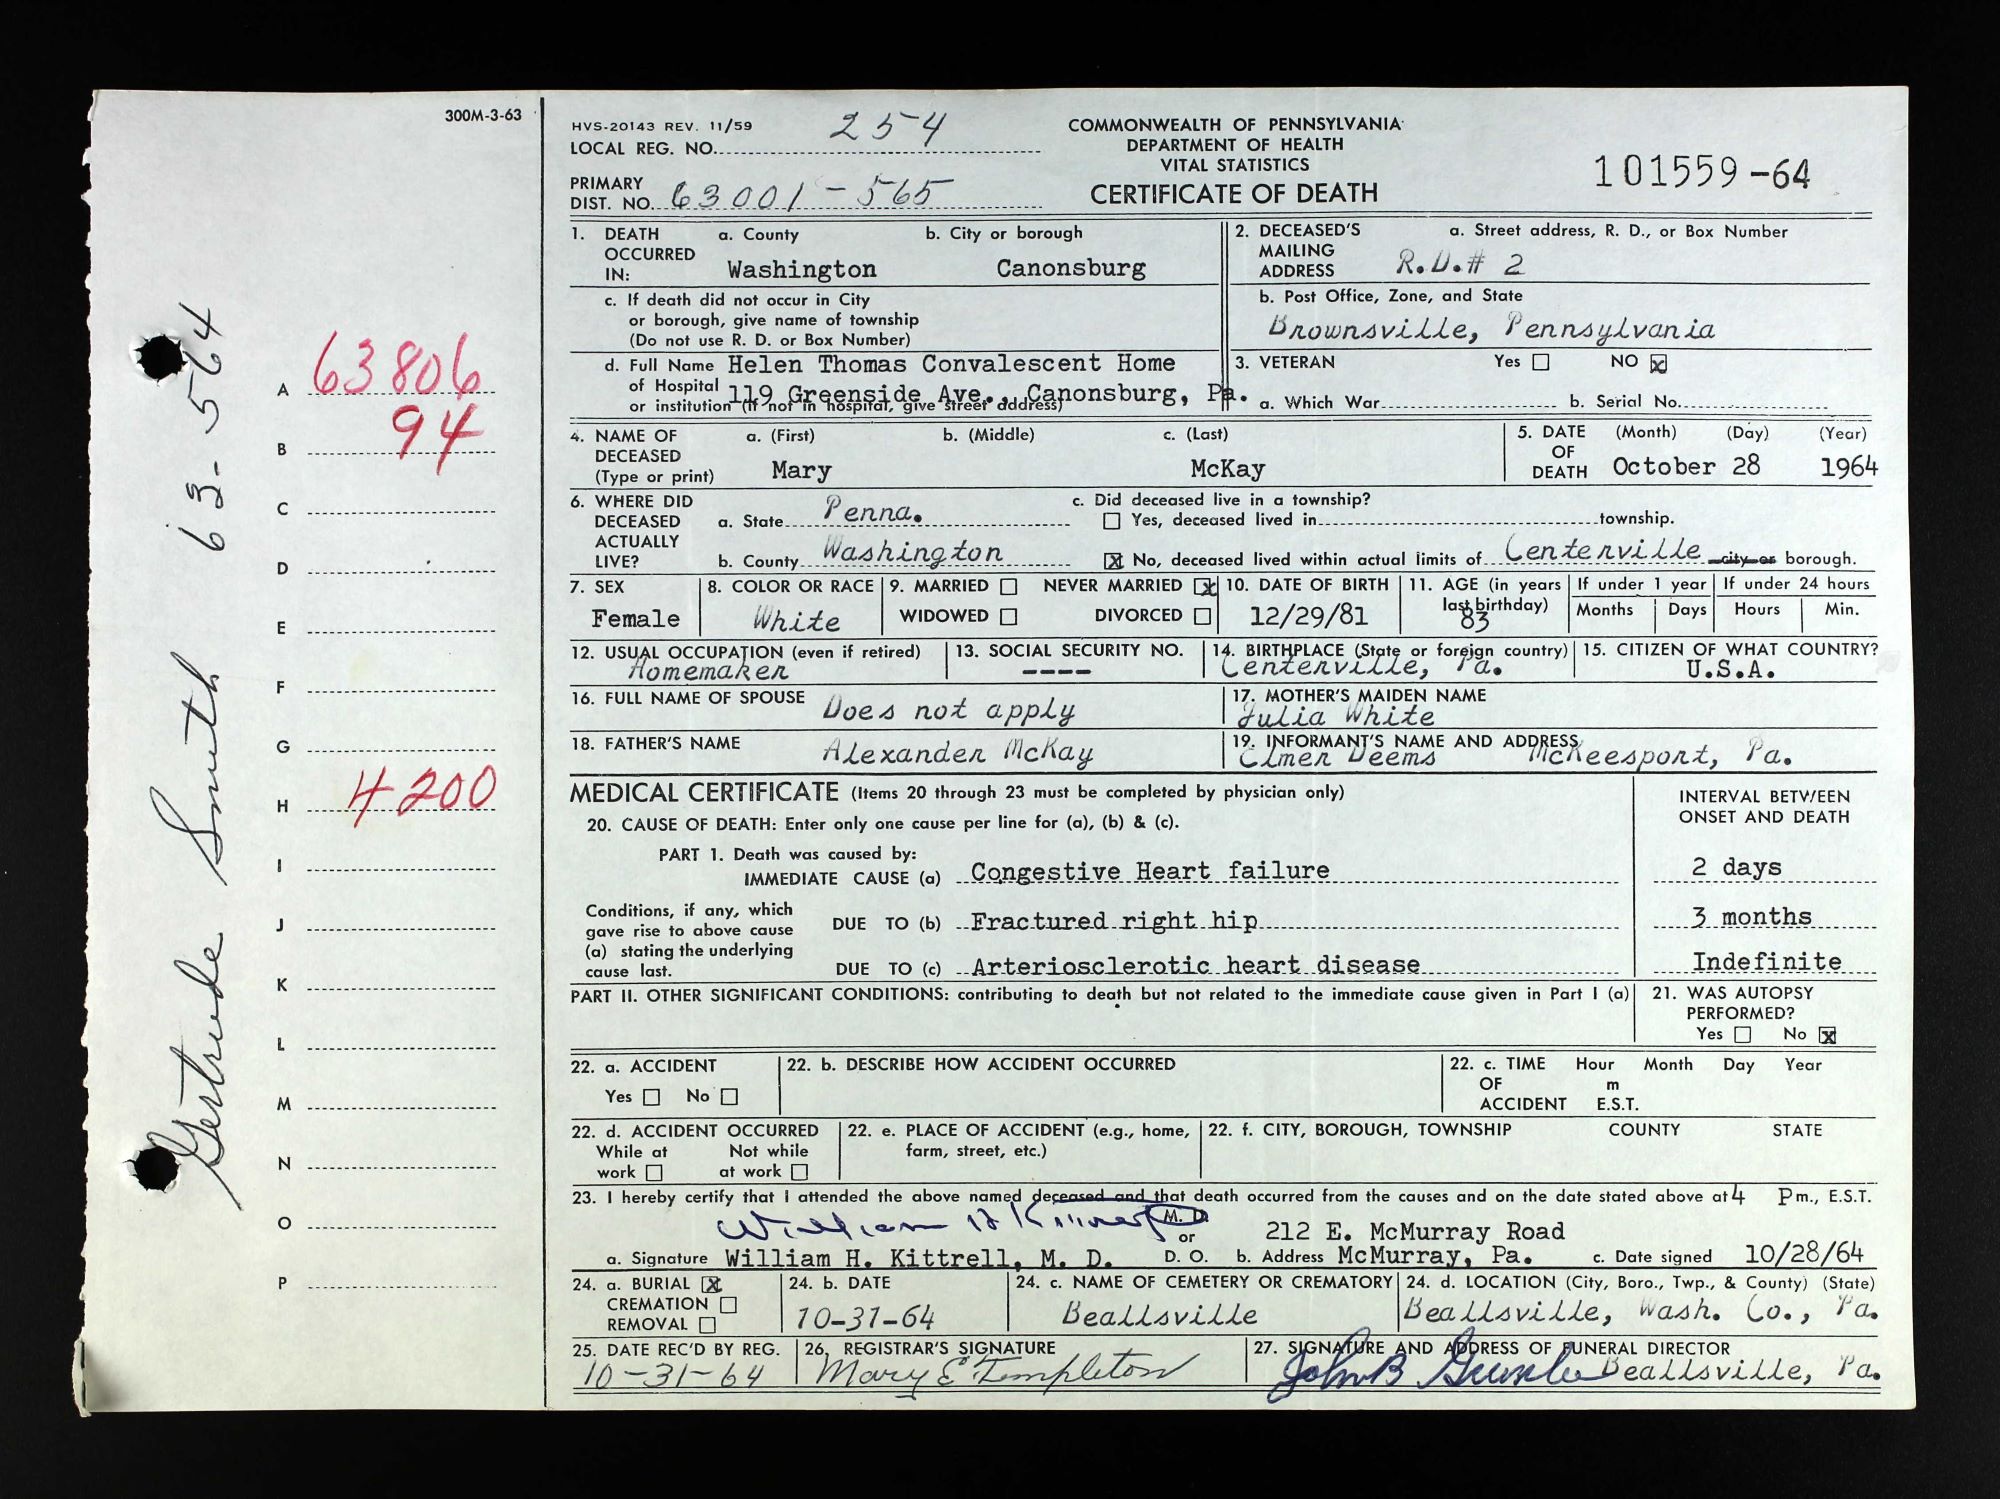 300M-3-63
63-564
Gertrude Smith
A 63806
B 94
C
D
E
F
G
H 4200
I
J
K
L
M
N
O
P
HVS-20143 REV. 11/59
LOCAL REG. NO. 254
PRIMARY
DIST. NO. 63001-565
COMMONWEALTH OF PENNSYLVANIA
DEPARTMENT OF HEALTH
VITAL STATISTICS
CERTIFICATE OF DEATH
101559-64
1. DEATH OCCURRED IN: a. County b. City or borough
Washington Canonsburg
c. If death did not occur in City
or borough, give name of township
(Do not use R. D. or Box Number)
d. Full Name of Hospital or institution (If not in hospital, give street address)
Helen Thomas Convalescent Home
119 Greenside Ave., Canonsburg, Pa.
2. DECEASED'S MAILING ADDRESS a. Street address, R. D., or Box Number
R.D.# 2
b. Post Office, Zone, and State
Brownsville, Pennsylvania
3. VETERAN Yes NO x
a. Which War b. Serial No.
4. NAME OF DECEASED (Type or print) a. (First) b. (Middle) c. (Last)
Mary McKay
5. DATE OF DEATH (Month) (Day) (Year)
October 28 1964
6. WHERE DID DECEASED ACTUALLY LIVE?
a. State Penna.
b. County Washington
c. Did deceased live in a township?
Yes, deceased lived in township.
x No, deceased lived within actual limits of Centerville city or borough.
7. SEX
Female
8. COLOR OR RACE
White
9. MARRIED NEVER MARRIED x
WIDOWED DIVORCED
10. DATE OF BIRTH
12/29/81
11. AGE (in years last birthday)
83
If under 1 year
Months Days
If under 24 hours
Hours Min.
12. USUAL OCCUPATION (even if retired)
Homemaker
13. SOCIAL SECURITY NO.
----
14. BIRTHPLACE (State or foreign country)
Centerville, Pa.
15. CITIZEN OF WHAT COUNTRY?
U.S.A.
16. FULL NAME OF SPOUSE Does not apply
17. MOTHER'S MAIDEN NAME
Julia White
18. FATHER'S NAME Alexander McKay
19. INFORMANT'S NAME AND ADDRESS
Elmer Deems McKeesport, Pa.
MEDICAL CERTIFICATE (Items 20 through 23 must be completed by physician only)
INTERVAL BETWEEN
ONSET AND DEATH
20. CAUSE OF DEATH: Enter only one cause per line for (a), (b) & (c).
PART 1. Death was caused by:
IMMEDIATE CAUSE (a) Congestive Heart failure 2 days
Conditions, if any, which
gave rise to above cause
(a) stating the underlying
cause last.
DUE TO (b) Fractured right hip 3 months
DUE TO (c) Arteriosclerotic heart disease Indefinite
PART II. OTHER SIGNIFICANT CONDITIONS: contributing to death but not related to the immediate cause given in Part I (a)
21. WAS AUTOPSY
PERFORMED?
Yes No x
22. a. ACCIDENT
Yes No
22. b. DESCRIBE HOW ACCIDENT OCCURRED
22. c. TIME OF ACCIDENT Hour Month Day Year
m
E.S.T.
22. d. ACCIDENT OCCURRED
While at work Not while at work
22. e. PLACE OF ACCIDENT (e.g., home,
farm, street, etc.)
22. f. CITY, BOROUGH, TOWNSHIP COUNTY STATE
23. I hereby certify that I attended the above named deceased and that death occurred from the causes and on the date stated above at 4 Pm., E.S.T.
William H Kittrell M. D. or D. O.
a. Signature William H. Kittrell, M. D.
212 E. McMurray Road
b. Address McMurray, Pa.
c. Date signed 10/28/64
24. a. BURIAL x
CREMATION
REMOVAL
24. b. DATE
10-31-64
24. c. NAME OF CEMETERY OR CREMATORY
Beallsville
24. d. LOCATION (City, Boro., Twp., & County) (State)
Beallsville, Wash. Co., Pa.
25. DATE REC'D BY REG.
10-31-64
26. REGISTRAR'S SIGNATURE
Mary E Templeton
27. SIGNATURE AND ADDRESS OF FUNERAL DIRECTOR
John B Beallsville, Pa.